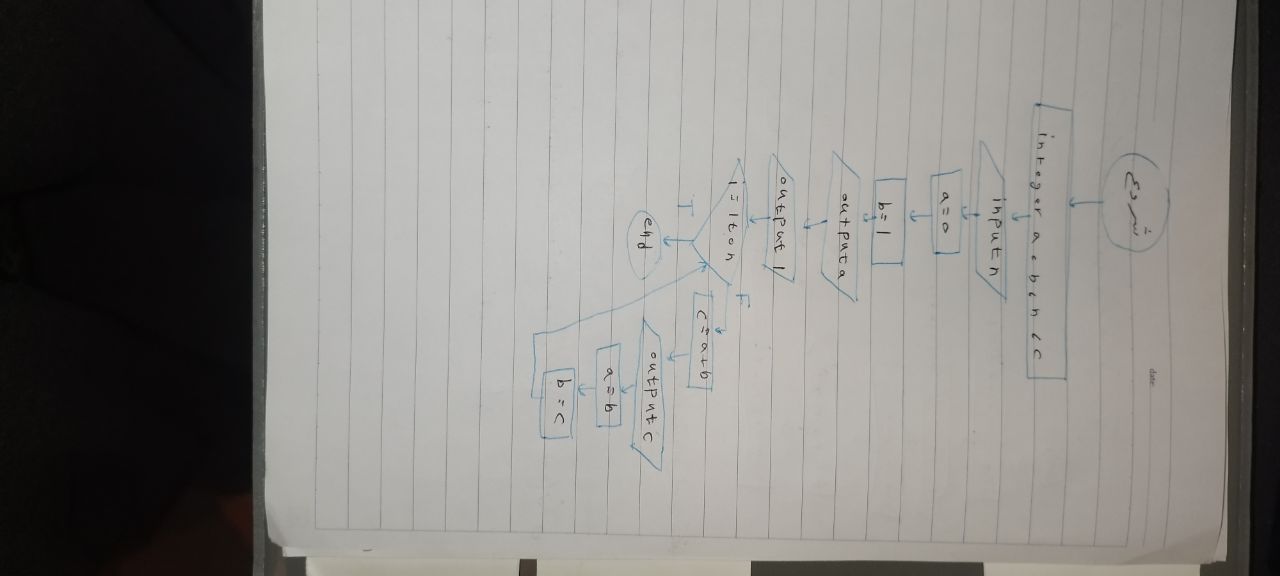 شروع
date:
integer a, b, n, c
input n
a = 0
b = 1
output a
output 1
i = 1 to n
T
F
end
c = a + b
output c
a = b
b = c